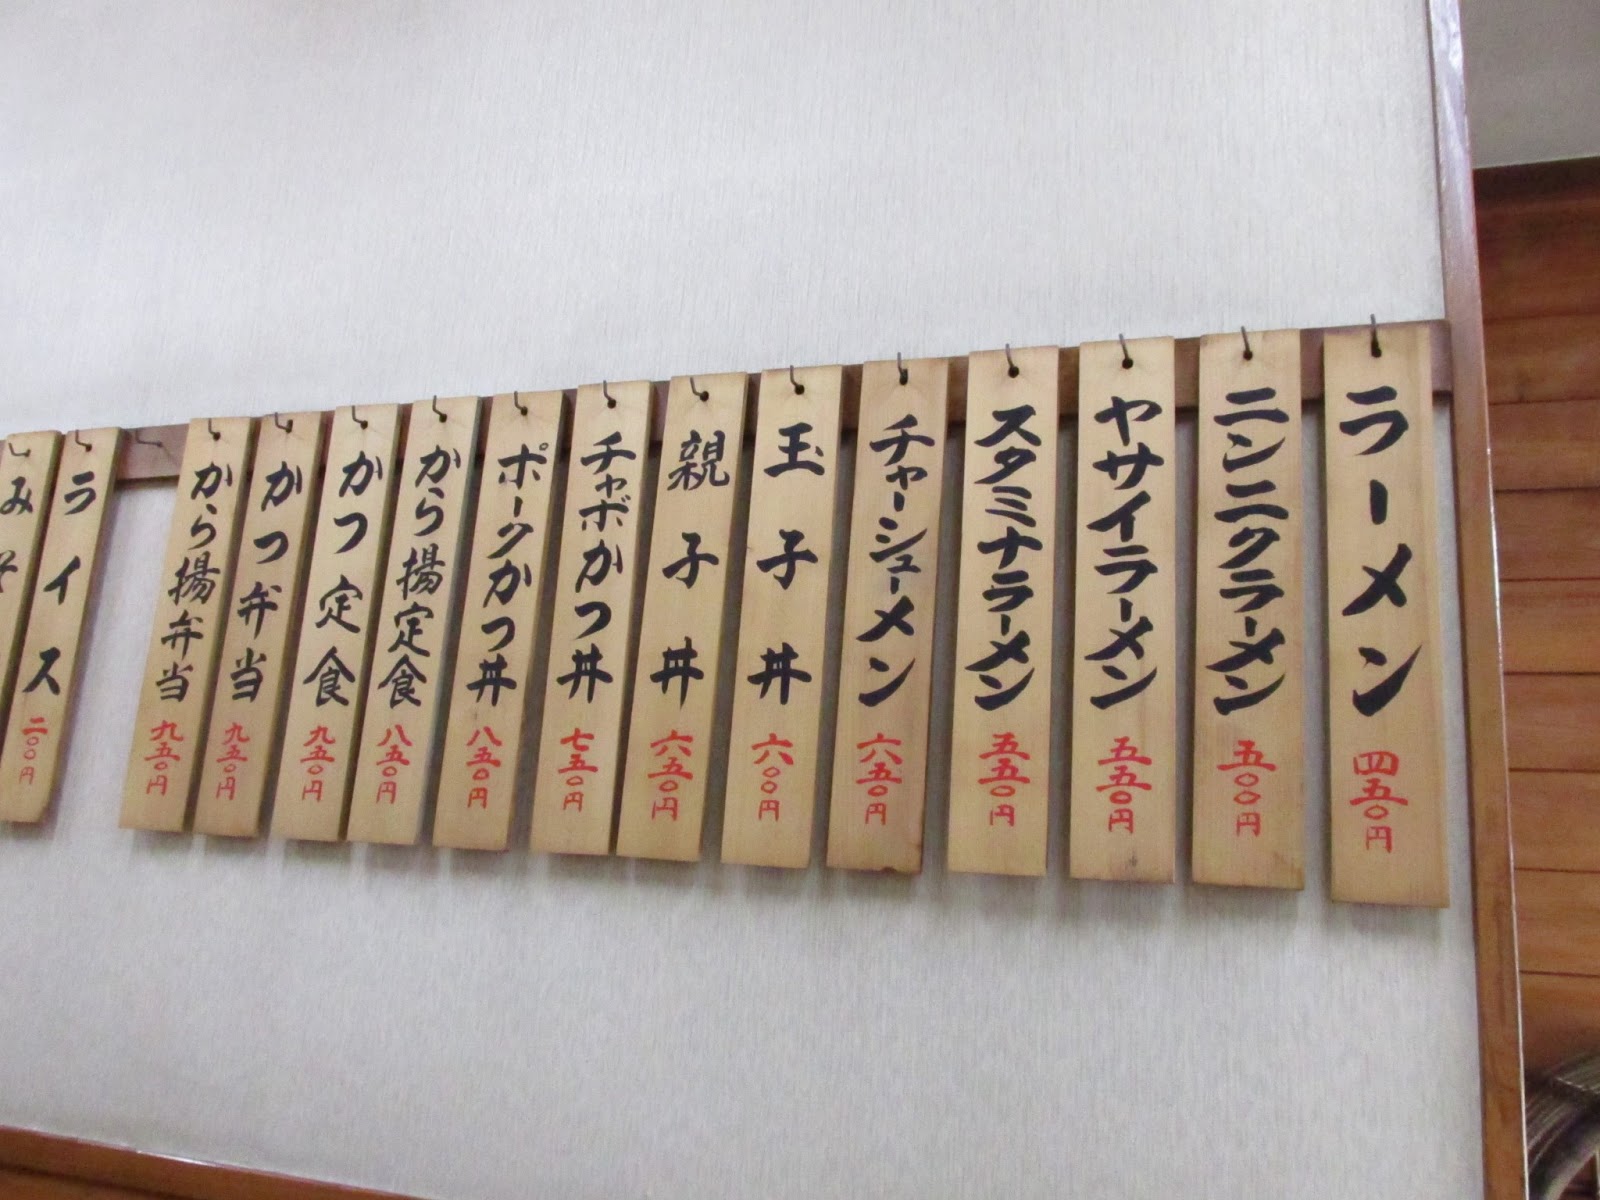 ラーメン 四五〇円
ニンニクラーメン 五〇〇円
ヤサイラーメン 五五〇円
スタミナラーメン 五五〇円
チャーシューメン 六五〇円
玉子丼 六〇〇円
親子丼 六五〇円
チャボかつ丼 七五〇円
ポークかつ丼 八五〇円
から揚定食 八五〇円
かつ定食 九五〇円
かつ弁当 九五〇円
から揚弁当 九五〇円
ライス 二〇〇円
みそ